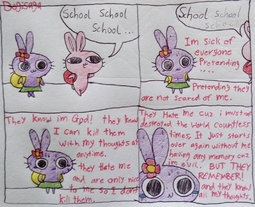 School School
School...
School School
School
Im Sick of
everyone
Pretending
....
Pretending they
are not Scared of me.
They Know im God! they Know
I Can Kill them
With my thoughts at
anytime.
they Hate me
and are only nice
to me So I dont
Kill them.
They Hate Me Cus i mustof
destroyed the World Countless
times, It Just starts
over again without me
having any memory cuz
im evil. BUT THEY
REMEMBER!
and they know
all my thoughts.